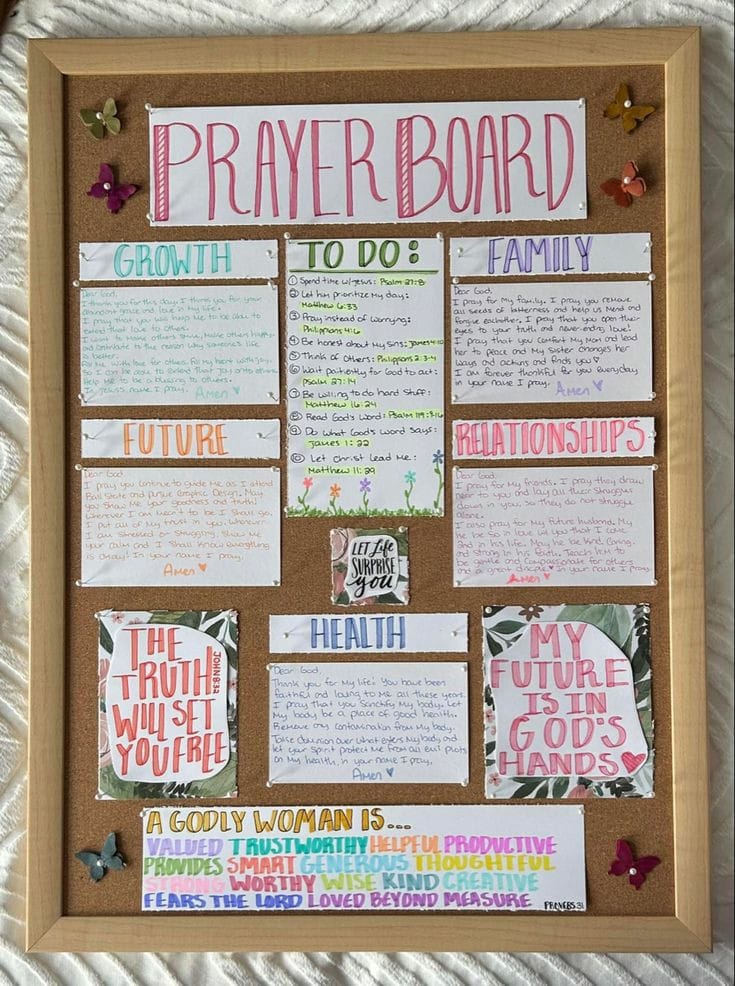 PRAYER BOARD
GROWTH
Dear God,
I thank you for this day. I thank you for your
abundant grace and love in my life.
I pray that you will help me to be able to
extend that love to others.
I want to make others smile, make others happy,
and contribute to the reason why someone's life
is better.
Fill me with love for others. Fill my heart with joy
So I can be able to extend that joy onto others.
Help me to be a blessing to others.
In Jesus name I pray. Amen
TO DO:
① Spend time w/Jesus: Psalm 27:8
② Let him prioritize my day:
Matthew 6:33
③ Pray instead of worrying:
Philippians 4:6
④ Be honest about my sins: James 4:10
⑤ Think of Others: Philippians 2:3-4
⑥ Wait patiently for God to act:
Psalm 27:14
⑦ Be willing to do hard stuff:
Matthew 16:24
⑧ Read God's Word: Psalm 119:9-16
⑨ Do what God's word says:
James 1:22
⑩ Let Christ lead me:
Matthew 11:29
FAMILY
Dear God,
I pray for my family. I pray you remove
all seeds of bitterness and help us mend and
forgive eachother. I pray that you open their
eyes to your truth and never-ending love!
I pray that you comfort my mom and lead
her to peace and my sister changes her
ways and actions and finds you ♥
I am forever thankful for you everyday
in your name I pray. Amen ♥
FUTURE
Dear God,
I pray you continue to guide me as I attend
Ball State and pursue Graphic Design. May
you show me your goodness and truth!
Wherever I am meant to be I shall go.
I put all of my trust in you. Whenever
I am stressed or struggling, show me
your calm and I shall know everything
is okay! In your name I pray.
Amen ♥
RELATIONSHIPS
Dear God,
I pray for my friends. I pray they draw
near to you and lay all their struggles
down in you, so they do not struggle
alone.
I also pray for my future husband. May
he be so in love w/ you that I come
2nd in his life. May he be kind, caring,
and strong in his faith. Teach him to
be gentle and compassionate for others
and a great disciple ♥ In your name I pray.
Amen ♥
LET life
SURPRISE
you
THE
TRUTH
WILL SET
YOU FREE
JOHN 8:32
HEALTH
Dear God,
Thank you for my life! You have been
faithful and loving to me all these years.
I pray that you sanctify my body. Let
my body be a place of good health.
Remove any contamination from my body.
Take dominion over what enters my body and
let your spirit protect me from all evil plots
on my health, in your name I pray.
Amen ♥
MY
FUTURE
IS IN
GOD'S
HANDS ♥
A GODLY WOMAN IS...
VALUED TRUSTWORTHY HELPFUL PRODUCTIVE
PROVIDES SMART GENEROUS THOUGHTFUL
STRONG WORTHY WISE KIND CREATIVE
FEARS THE LORD LOVED BEYOND MEASURE
PROVERBS 31